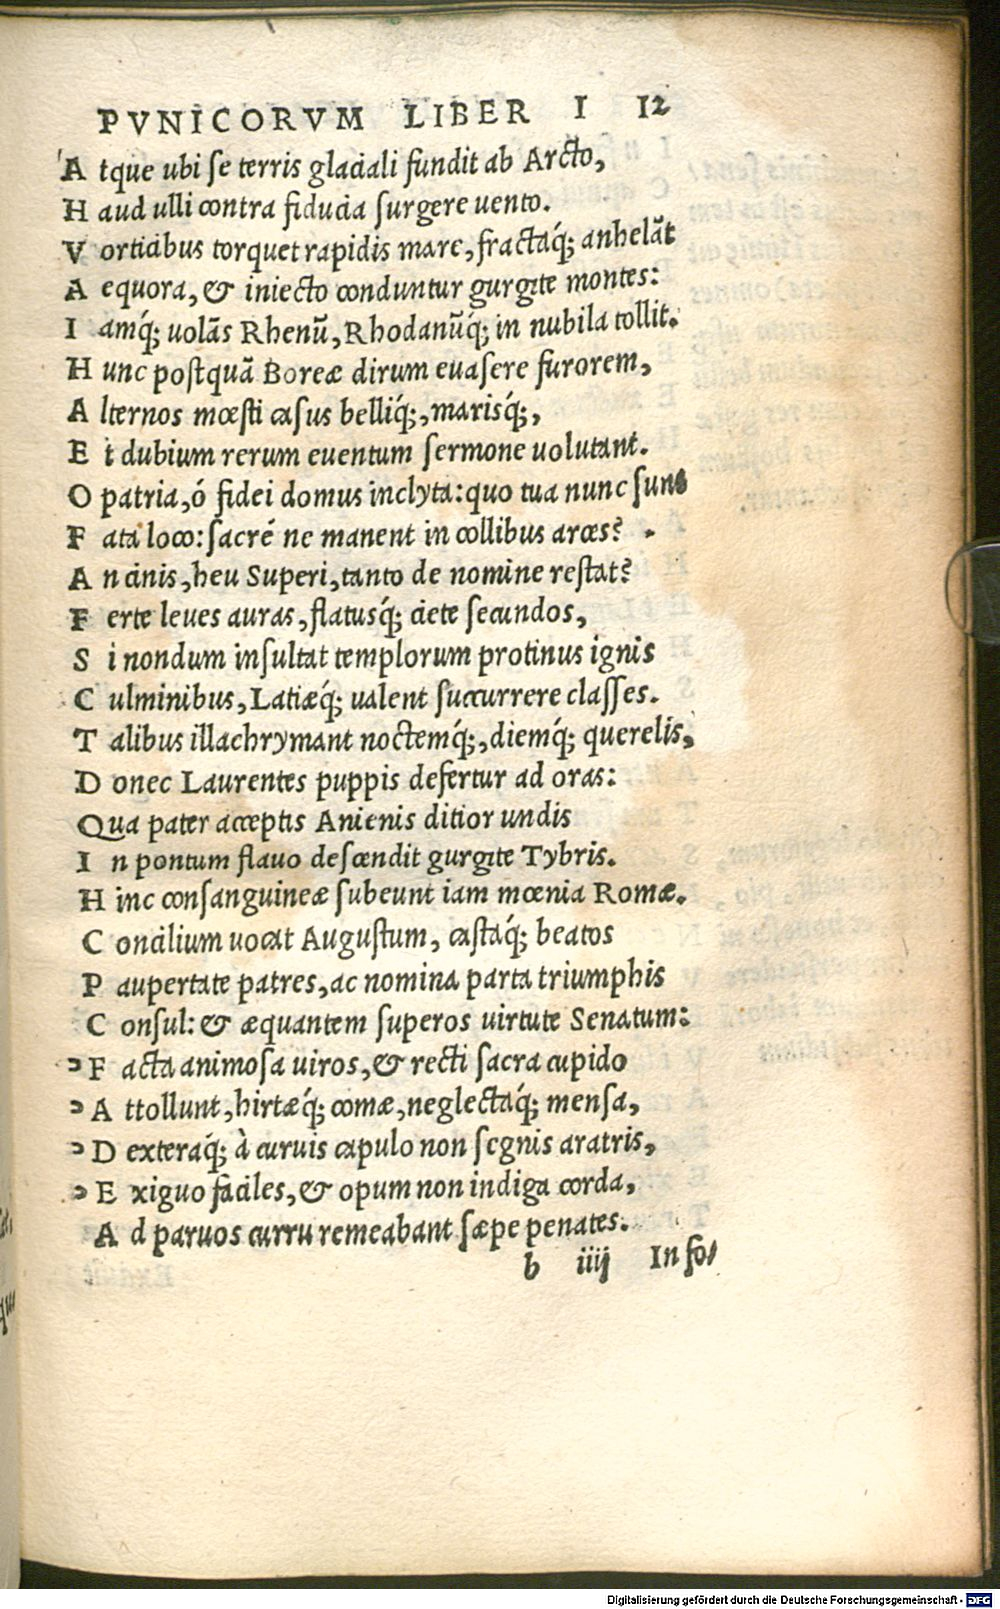 PVNICORVM LIBER I 12
A tque ubi se terris glaciali fundit ab Arcto,
H aud ulli contra fiducia surgere uento.
V orticibus torquet rapidis mare, fractaq́; anhelãt
A equora, & iniecto conduntur gurgite montes:
I amq́; uolãs Rhenũ, Rhodanũq́; in nubila tollit.
H unc postquã Boreæ dirum euasere furorem,
A lternos mœsti casus belliq́;, marisq́;,
E t dubium rerum euentum sermone uolutant.
O patria, ó fidei domus inclyta: quo tua nunc sunt
F ata loco: sacrę́ ne manent in collibus arces?
A n cinis, heu Superi, tanto de nomine restat?
F erte leues auras, flatusq́; ciete secundos,
S i nondum insultat templorum protinus ignis
C ulminibus, Latiæq́; ualent succurrere classes.
T alibus illachrymant noctemq́;, diemq́; querelis,
D onec Laurentes puppis defertur ad oras:
Qua pater acceptis Anienis ditior undis
I n pontum flauo descendit gurgite Tybris.
H inc consanguineæ subeunt iam mœnia Romæ.
C oncilium uocat Augustum, castaq́; beatos
P aupertate patres, ac nomina parta triumphis
C onsul: & æquantem superos uirtute Senatum:
F acta animosa uiros, & recti sacra cupido
A ttollunt, hirtæq́; comæ, neglectaq́; mensa,
D exteraq́; à curuis capulo non segnis aratris,
E xiguo faciles, & opum non indiga corda,
A d paruos curru remeabant sæpe penates.
b iiij In fo/
Digitalisierung gefördert durch die Deutsche Forschungsgemeinschaft - DFG